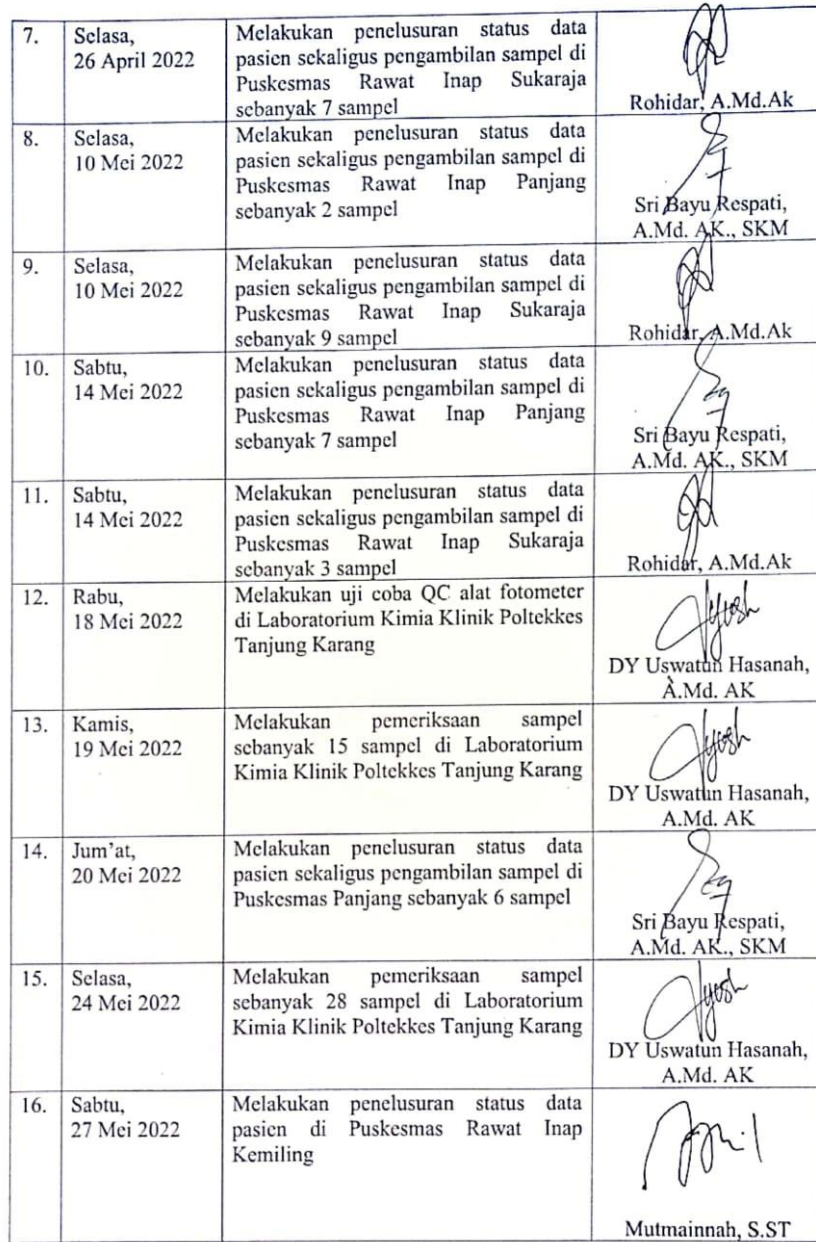 7. Selasa, 26 April 2022 Melakukan penelusuran status data
pasien sekaligus pengambilan sampel di
Puskesmas Rawat Inap Sukaraja
sebanyak 7 sampel
Rohidar, A.Md.Ak
8. Selasa, 10 Mei 2022 Melakukan penelusuran status data
pasien sekaligus pengambilan sampel di
Puskesmas Rawat Inap Panjang
sebanyak 2 sampel
Sri Bayu Respati,
A.Md. AK., SKM
9. Selasa, 10 Mei 2022 Melakukan penelusuran status data
pasien sekaligus pengambilan sampel di
Puskesmas Rawat Inap Sukaraja
sebanyak 9 sampel
Rohidar, A.Md.Ak
10. Sabtu, 14 Mei 2022 Melakukan penelusuran status data
pasien sekaligus pengambilan sampel di
Puskesmas Rawat Inap Panjang
sebanyak 7 sampel
Sri Bayu Respati,
A.Md. AK., SKM
11. Sabtu, 14 Mei 2022 Melakukan penelusuran status data
pasien sekaligus pengambilan sampel di
Puskesmas Rawat Inap Sukaraja
sebanyak 3 sampel
Rohidar, A.Md.Ak
12. Rabu, 18 Mei 2022 Melakukan uji coba QC alat fotometer
di Laboratorium Kimia Klinik Poltekkes
Tanjung Karang
DY Uswatun Hasanah,
A.Md. AK
13. Kamis, 19 Mei 2022 Melakukan pemeriksaan sampel
sebanyak 15 sampel di Laboratorium
Kimia Klinik Poltekkes Tanjung Karang
DY Uswatun Hasanah,
A.Md. AK
14. Jum'at, 20 Mei 2022 Melakukan penelusuran status data
pasien sekaligus pengambilan sampel di
Puskesmas Panjang sebanyak 6 sampel
Sri Bayu Respati,
A.Md. AK., SKM
15. Selasa, 24 Mei 2022 Melakukan pemeriksaan sampel
sebanyak 28 sampel di Laboratorium
Kimia Klinik Poltekkes Tanjung Karang
DY Uswatun Hasanah,
A.Md. AK
16. Sabtu, 27 Mei 2022 Melakukan penelusuran status data
pasien di Puskesmas Rawat Inap
Kemiling
Mutmainnah, S.ST